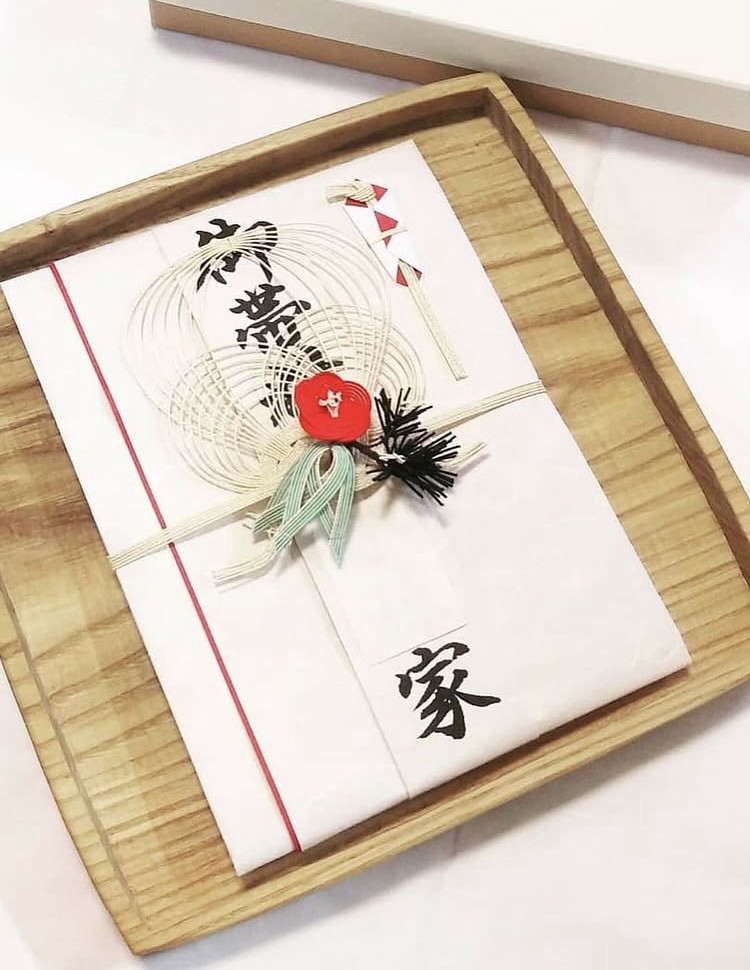 御帯
家